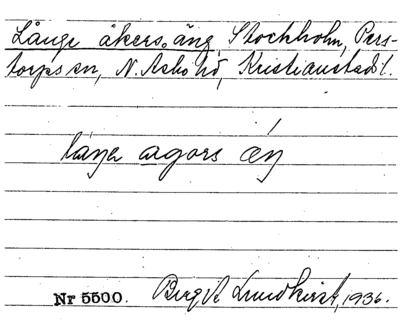 Långe åkers äng, Stockholm, Pers-
torps sn, N. Åsbo hd, Kristianstads l.
låŋa agors æŋ
Nr 5500. Birgit Lundkvist, 1936.